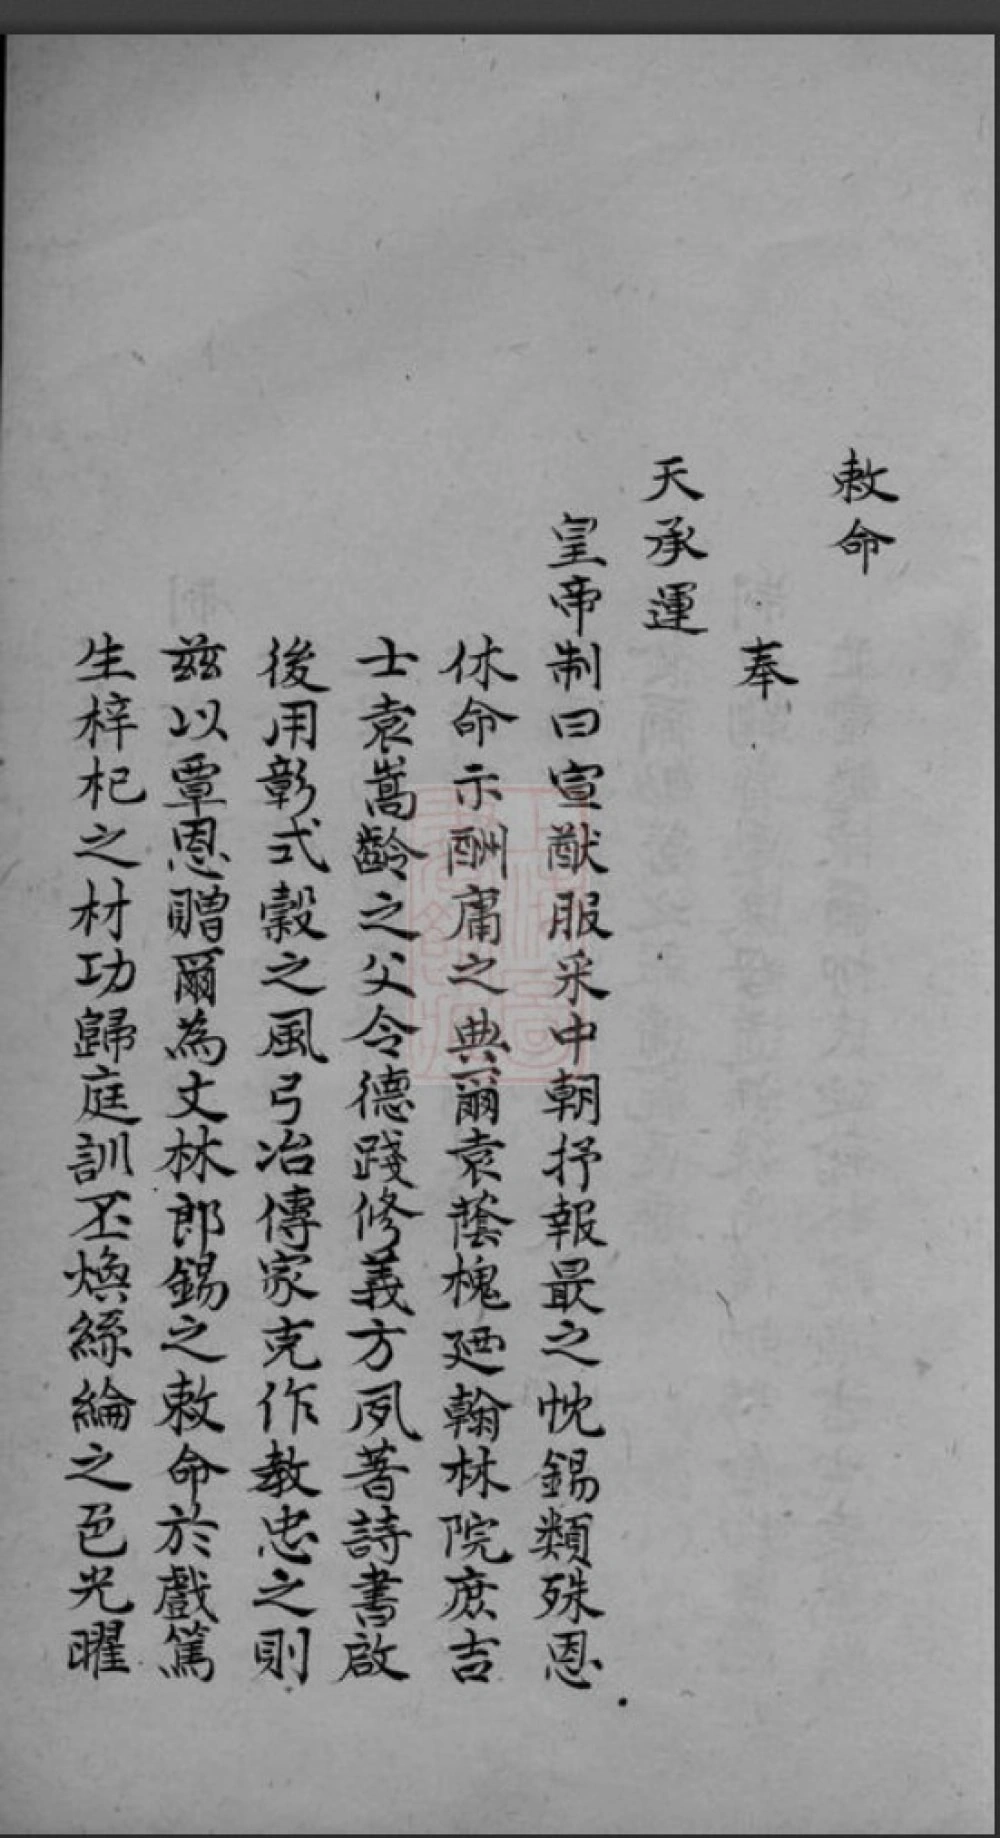 敕命
奉
天承運
皇帝制曰宣猷服采中朝抒報最之忱錫類殊恩
休命示酬庸之典爾袁蔭槐廼翰林院庶吉
士袁嵩齡之父令德踐修義方夙著詩書啟
後用彰式穀之風弓冶傳家克作教忠之則
茲以覃恩贈爾為文林郎錫之敕命於戲篤
生梓杞之材功歸庭訓丕煥絲綸之色光曜